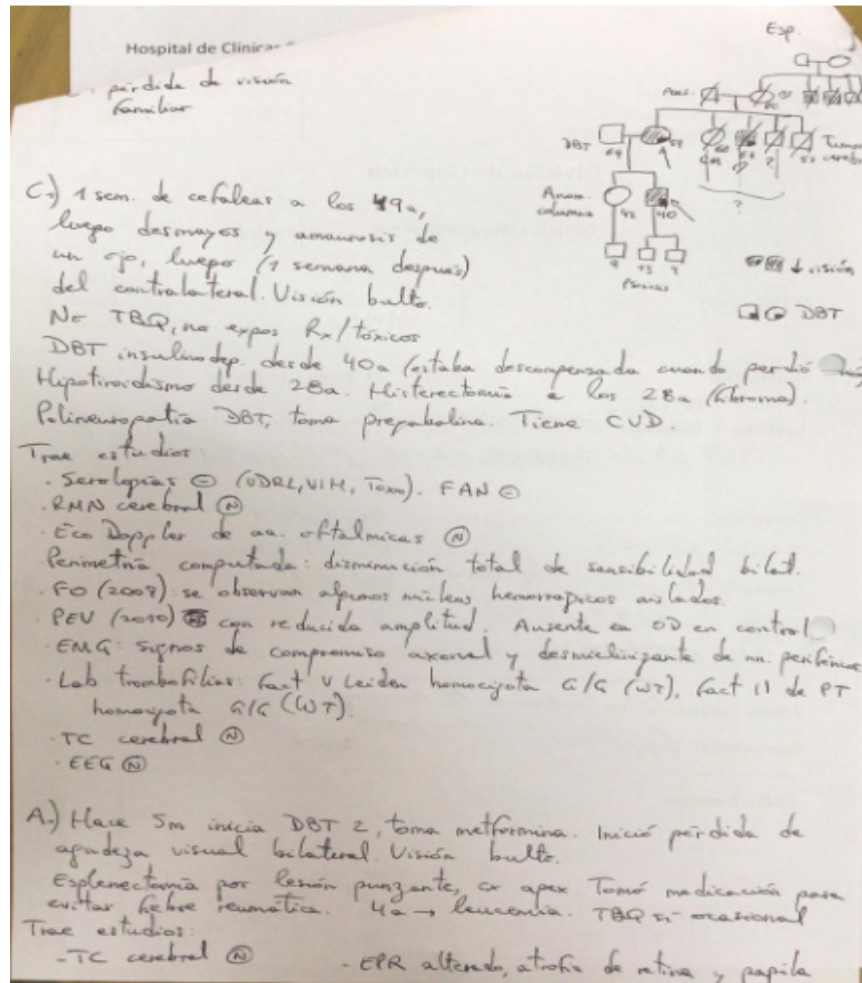 Hospital de Clínicas
pérdida de visión
familiar
Esp.
DBT
64
59
60
Tumor
cerebro
50
Anom.
columna
42
40
9
13
9
↓ visión
DBT
C.) 1 sem. de cefaleas a los 49a,
luego desmayos y amaurosis de
un ojo, luego (1 semana después)
del contralateral. Visión bulto.
No TBQ, no expos Rx/tóxicos
DBT insulinodep. desde 40a (estaba descompensada cuando perdió
Hipotiroidismo desde 28a. Histerectomía a los 28a (fibroma).
Polineuropatía DBT, toma pregabalina. Tiene CUD.
Trae estudios:
. Serologías ⊖ (VDRL, VIH, Toxo). FAN ⊖
. RMN cerebral Ⓝ
. Eco Doppler de aa. oftalmicas Ⓝ
Perimetría computada: disminución total de sensibilidad bilat.
. FO (2009): se observan algunos núcleos hemorrágicos aislados
. PEV (2010) con reducida amplitud. Ausente en OD en control
. EMG: signos de compromiso axonal y desmielinizante de nn. periféricos
. Lab trombofilias: Fact V Leiden homocigota G/G (WT), fact II de PT
homocigota G/G (WT).
. TC cerebral Ⓝ
. EEG Ⓝ
A.) Hace 5m inicia DBT 2, toma metformina. Inició pérdida de
agudeza visual bilateral. Visión bulto.
Esplenectomía por lesión punzante, cx apex. Tomó medicación para
evitar fiebre reumática. 4a → leucemia. TBQ sí ocasional
Trae estudios:
- TC cerebral Ⓝ
- EPR alterado, atrofia de retina y papila